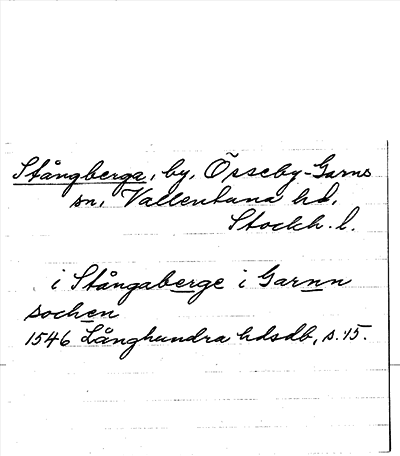 Stångberga, by, Össeby-Garns
sn, Vallentuna hd,
Stockh. l.
i Stångaberge i Garnn
sochen
1546 Långhundra hdsdb, s. 15.